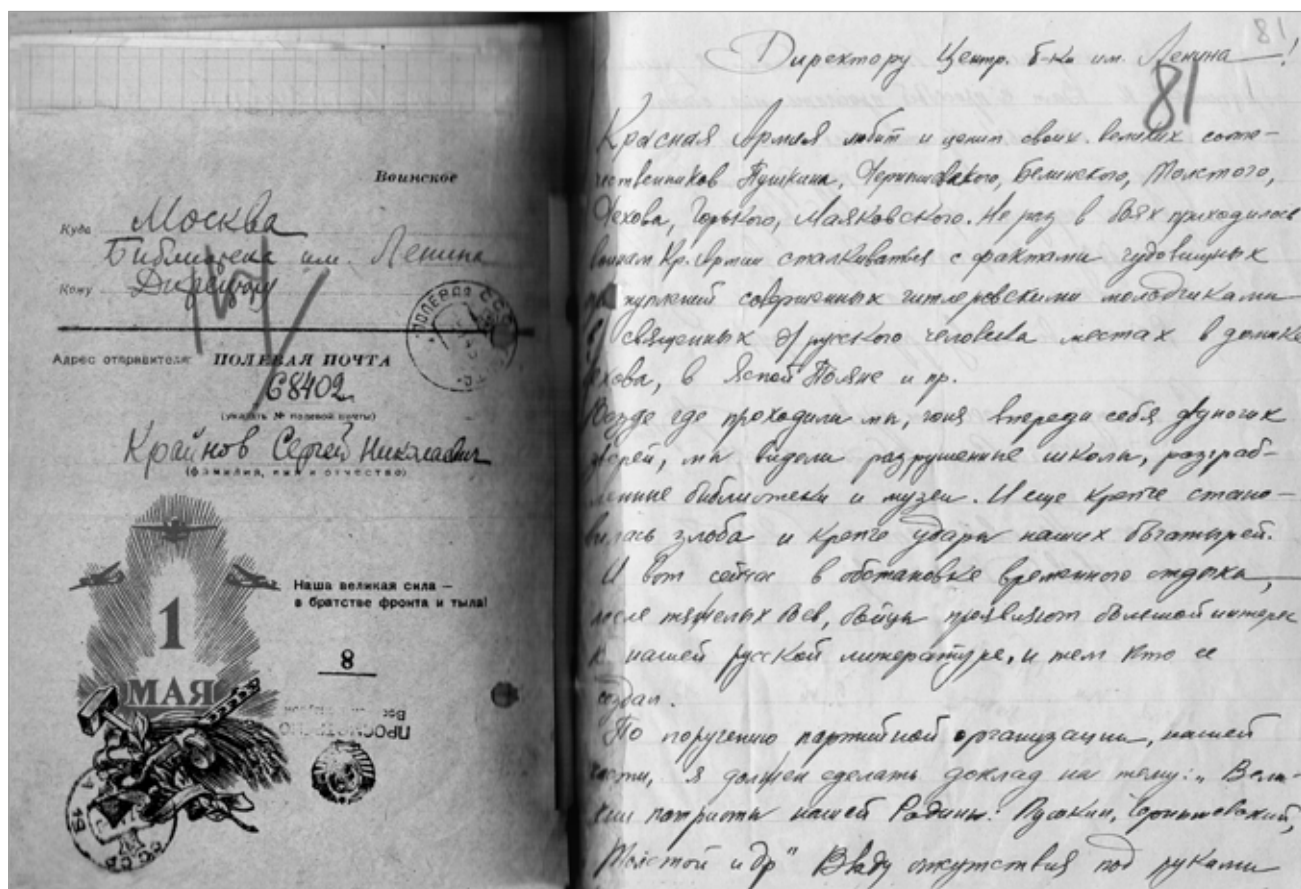 Воинское
Куда Москва
Библиотека им. Ленина
Кому Директору
Адрес отправителя: ПОЛЕВАЯ ПОЧТА
68402
(указать № полевой почты)
Крайнов Сергей Николаевич
(фамилия, имя и отчество)
1
МАЯ
Наша великая сила —
в братстве фронта и тыла!
8
ПРОСМОТРЕНО
81
Директору Центр. б-ки им. Ленина!
81
Красная Армия любит и ценит своих великих соте-
чественников Пушкина, Чернышевского, Белинского, Толстого,
Чехова, Горького, Маяковского. Не раз в боях приходилось
воинам Кр. Армии сталкиваться с фактами чудовищных
преступлений совершенных гитлеровскими молодчиками
в священных д/русского человека местах в домике
Чехова, в Ясной Поляне и пр.
Везде где проходили мы, гоня впереди себя двуногих
зверей, мы видели разрушенные школы, разграб-
ленные библиотеки и музеи. И еще крепче стано-
вилась злоба и крепче удары наших богатырей.
И вот сейчас в обстановке временного отдыха,
после тяжелых боев, бойцы проявляют большой интерес
к нашей русской литературе, и тем кто ее
создал.
По поручению партийной организации, нашей
части, я должен сделать доклад на тему: „Вели-
кии патриоты нашей Родины: Пушкин, Чернышевский,
Толстой и др" Ввиду отсутствия под руками